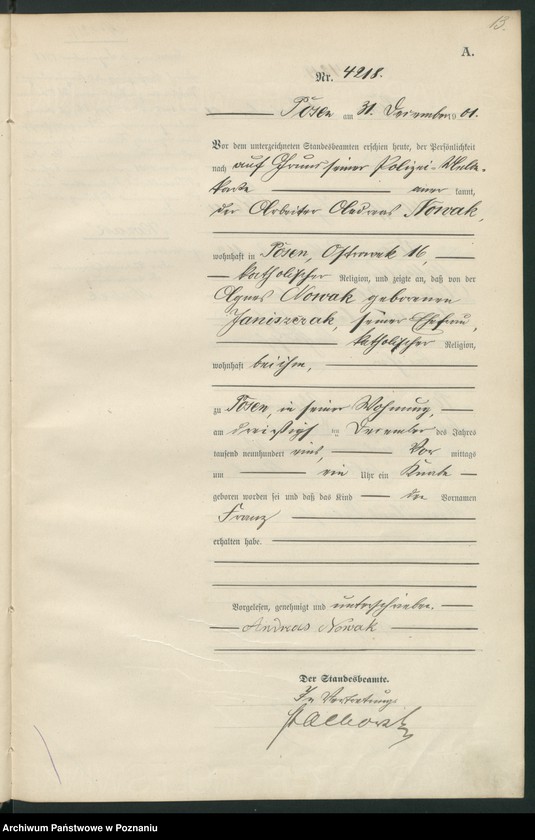 13.
A.
Nr. 4218.
Posen am 31. Dezember 1901.
Vor dem unterzeichneten Standesbeamten erschien heute, der Persönlichkeit
nach auf Grund seiner Polizei-Melde-
karte anerkannt,
der Arbeiter Andreas Nowak,
wohnhaft in Posen, Ostrowek 16,
katholischer Religion, und zeigte an, daß von der
Agnes Nowak geborenen
Janiszczak, seiner Ehefrau,
katholischer Religion,
wohnhaft bei ihm,
zu Posen, in seiner Wohnung,
am dreißigsten Dezember des Jahres
tausend neunhundert eins, Vormittags
um ein Uhr ein Knabe
geboren worden sei und daß das Kind den Vornamen
Franz
erhalten habe.
Vorgelesen, genehmigt und unterschrieben.
Andreas Nowak
Der Standesbeamte.
In Vertretung
Archiwum Państwowe w Poznaniu